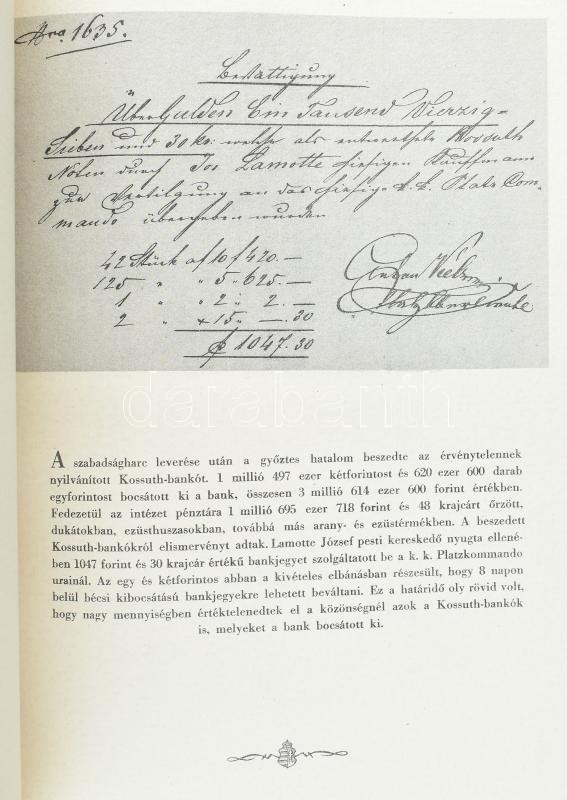 Nro. 1635.
Bestättigung
Über Gulden Ein Tausend Vierzig=
Sieben und 30 Kr. welche als entwerthete Kossuth
Noten durch Jos Lamotte hiesigen Kaufmann
zur Vertilgung an das hiesige k. k. Platz Com-
mando übergeben wurden
42 Stück af 10 f 420.—
125 " " 5 " 625.—
1 " " 2 " 2.—
2 " x 15 " —.30
1047.30
darabanth
A szabadságharc leverése után a győztes hatalom beszedte az érvénytelennek
nyilvánított Kossuth-bankót. 1 millió 497 ezer kétforintost és 620 ezer 600 darab
egyforintost bocsátott ki a bank, összesen 3 millió 614 ezer 600 forint értékben.
Fedezetül az intézet pénztára 1 millió 695 ezer 718 forint és 48 krajcárt őrzött,
dukátokban, ezüsthuszasokban, továbbá más arany- és ezüstérmékben. A beszedett
Kossuth-bankókról elismervényt adtak. Lamotte József pesti kereskedő nyugta ellené-
ben 1047 forint és 30 krajcár értékű bankjegyet szolgáltatott be a k. k. Platzkommando
urainál. Az egy és kétforintos abban a kivételes elbánásban részesült, hogy 8 napon
belül bécsi kibocsátású bankjegyekre lehetett beváltani. Ez a határidő oly rövid volt,
hogy nagy mennyiségben értéktelenedtek el a közönségnél azok a Kossuth-bankók
is, melyeket a bank bocsátott ki.